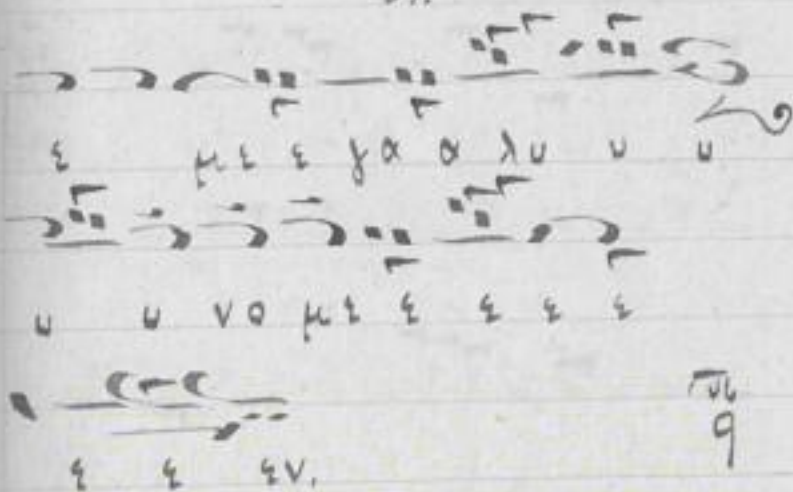 ε με ε γα α λυ υ υ
υ υ νο με ε ε ε ε
ε ε εν.